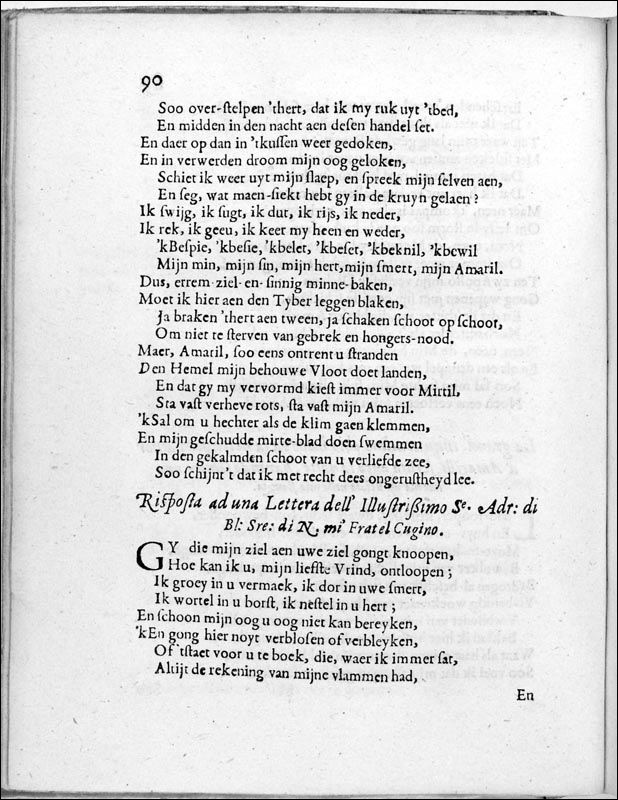 90
Soo over-stelpen 'thert, dat ik my ruk uyt 'tbed,
En midden in den nacht aen desen handel set.
En daer op dan in 'tkussen weer gedoken,
En in verwerden droom mijn oog geloken,
Schiet ik weer uyt mijn slaep, en spreek mijn selven aen,
En seg, wat maen-siekt hebt gy in de kruyn gelaen?
Ik swijg, ik sugt, ik dut, ik rijs, ik neder,
Ik rek, ik geeu, ik keer my heen en weder,
'kBespie, 'kbesie, 'kbelet, 'kbeset, 'kbeknil, 'kbewil
Mijn min, mijn sin, mijn hert, mijn smert, mijn Amaril.
Dus, errem ziel-en-sinnig minne-baken,
Moet ik hier aen den Tyber leggen blaken,
Ja braken 'thert aen tween, ja schaken schoot op schoot,
Om niet te sterven van gebrek en hongers-nood.
Maer, Amaril, soo eens ontrent u stranden
Den Hemel mijn behouwe Vloot doet landen,
En dat gy my vervormd kiest immer voor Mirtil,
Sta vast verheve rots, sta vast mijn Amaril.
'kSal om u hechter als de klim gaen klemmen,
En mijn geschudde mirte-blad doen swemmen
In den gekalmden schoot van u verliefde zee,
Soo schijnt't dat ik met recht dees ongerustheyd lee.
Risposta ad una Lettera dell' Illustrißimo Se. Adr: di
Bl: Sre: di N. mi' Fratel Cugino.
GY die mijn ziel aen uwe ziel gongt knoopen,
Hoe kan ik u, mijn liefste Vrind, ontloopen;
Ik groey in u vermaek, ik dor in uwe smert,
Ik wortel in u borst, ik nestel in u hert;
En schoon mijn oog u oog niet kan bereyken,
'kEn gong hier noyt verblosen of verbleyken,
Of 'tstaet voor u te boek, die, waer ik immer sat,
Altijt de rekening van mijne vlammen had,
En